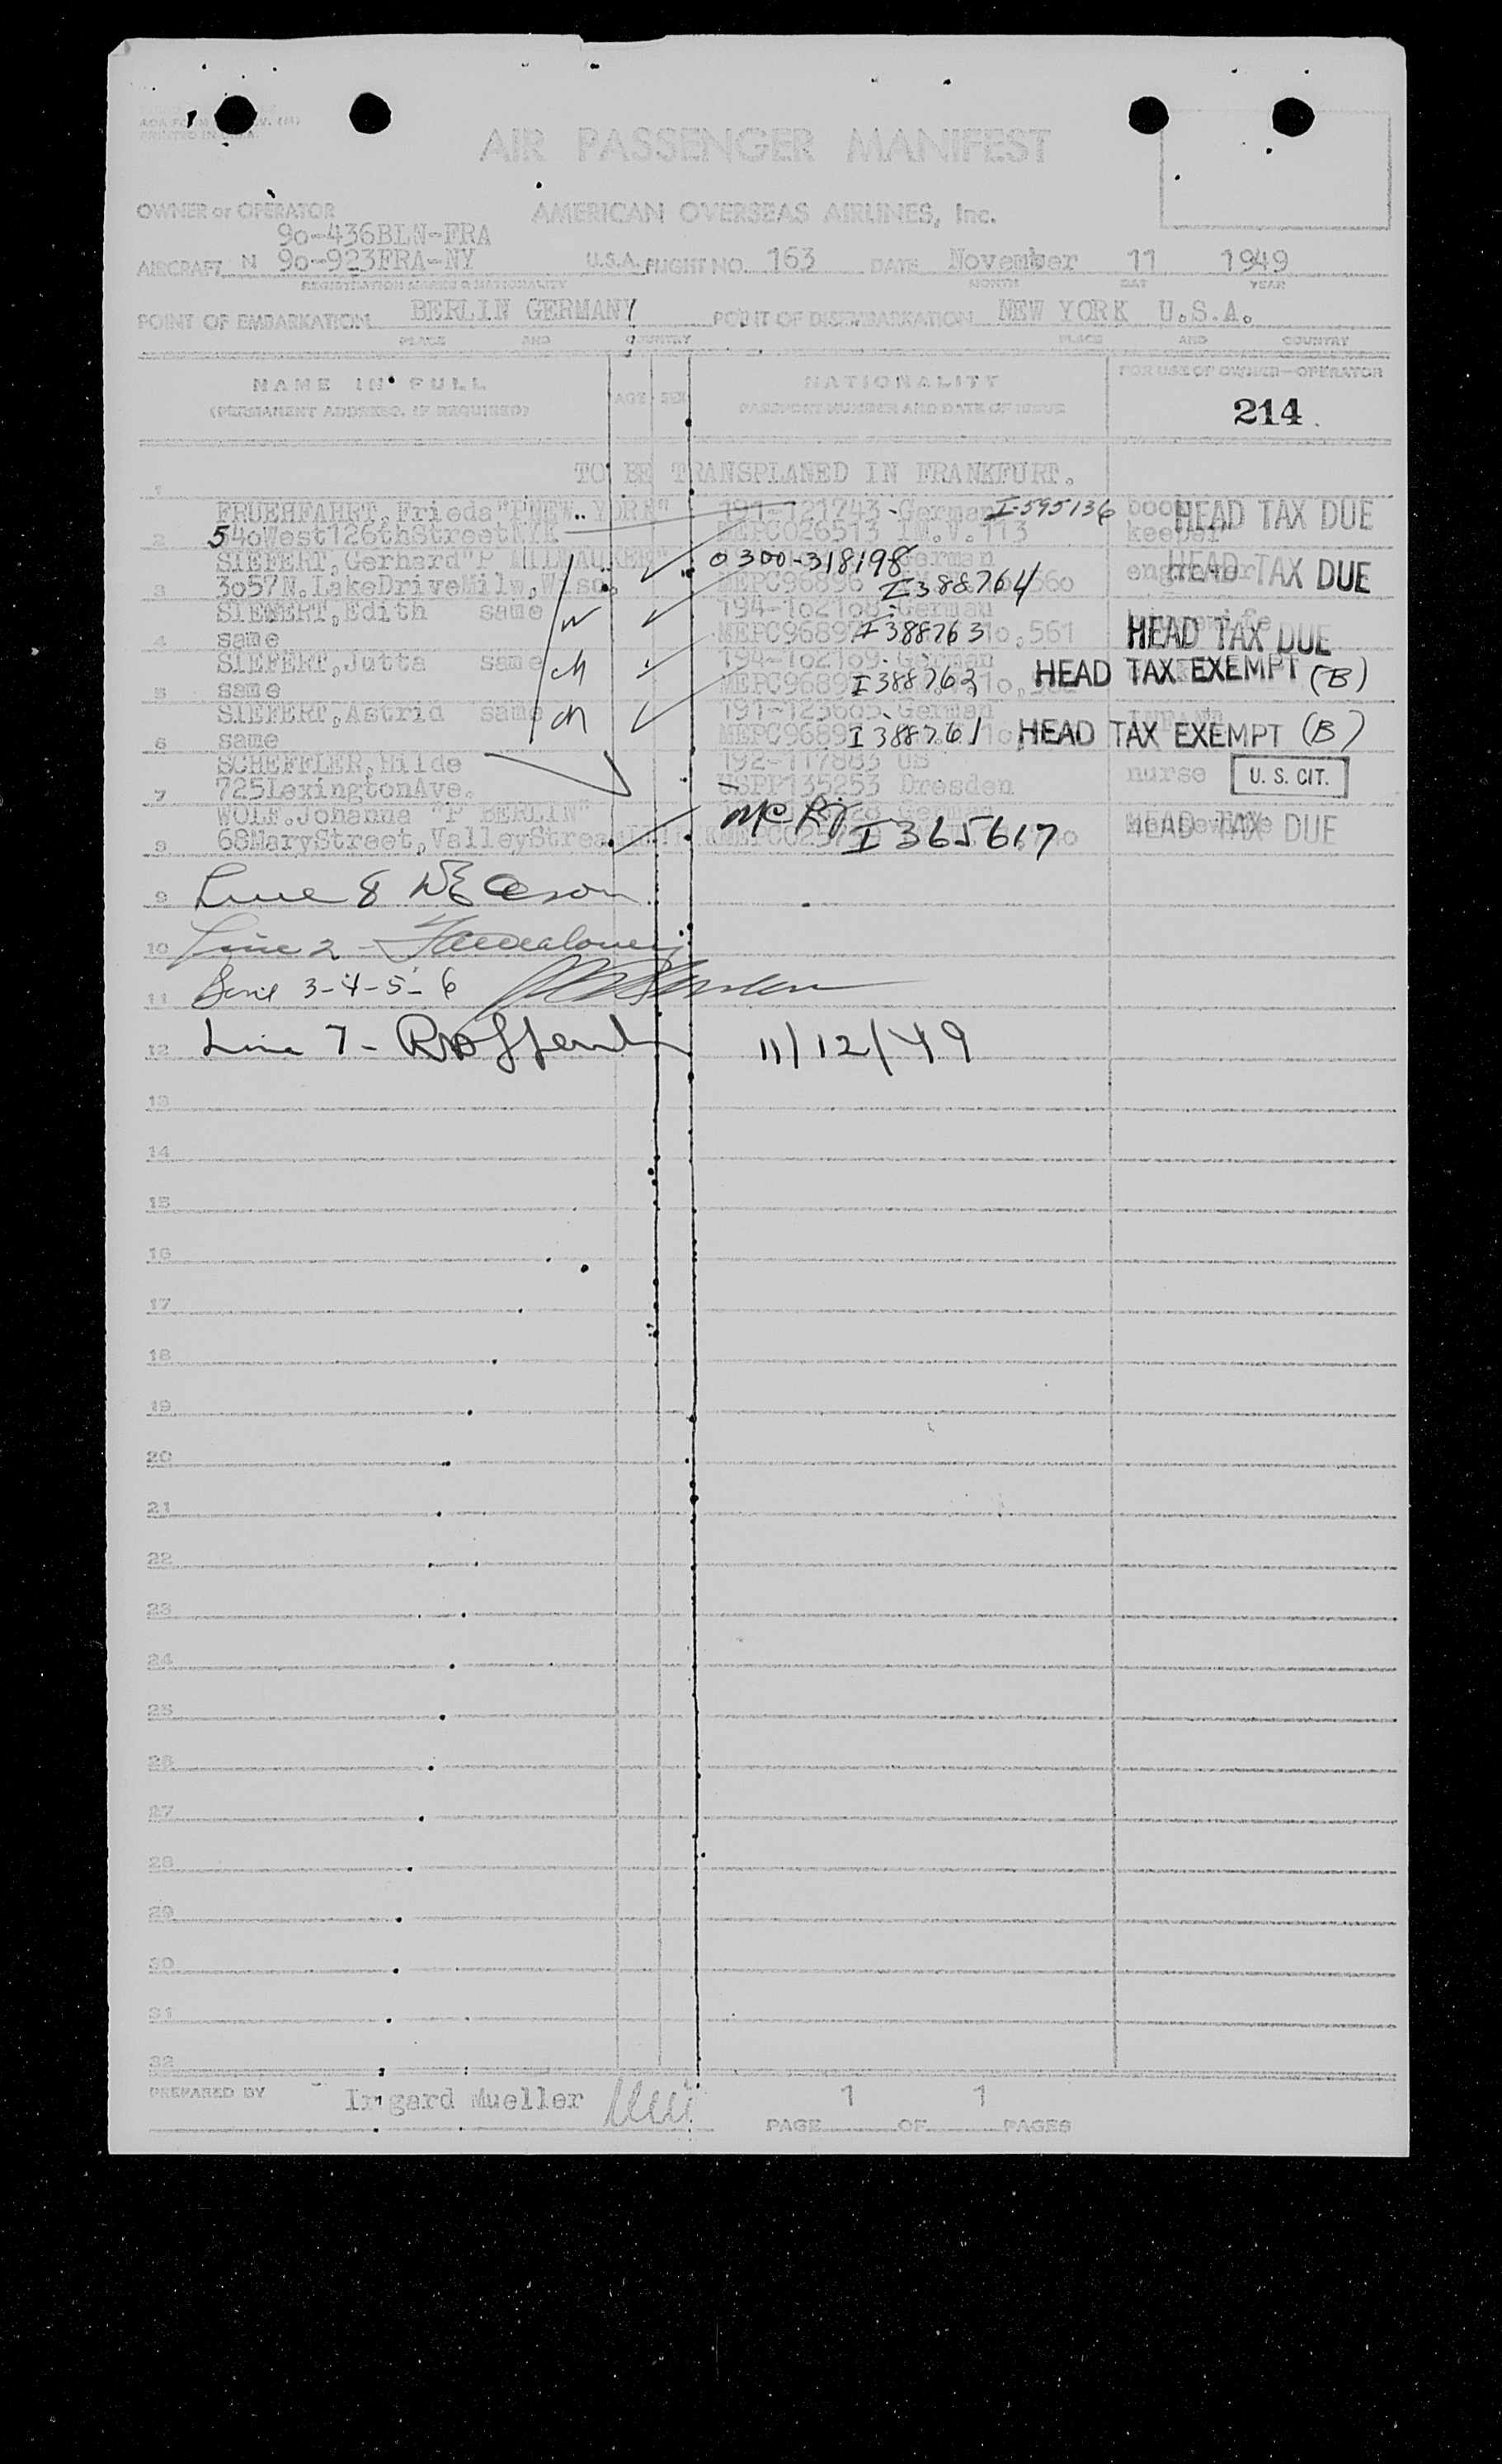 AIR PASSENGER MANIFEST
OWNER or OPERATOR AMERICAN OVERSEAS AIRLINES, Inc.
90-436BLN-FRA
AIRCRAFT N 90-923FRA-NY U.S.A. FLIGHT NO. 163 DATE November 11 1949
REGISTRATION MARKS & NATIONALITY MONTH DAY YEAR
POINT OF EMBARKATION BERLIN GERMANY POINT OF DISEMBARKATION NEW YORK U.S.A.
PLACE AND COUNTRY PLACE AND COUNTRY
NAME IN FULL AGE SEX NATIONALITY FOR USE OF OWNER—OPERATOR
(PERMANENT ADDRESS, IF REQUIRED) PASSPORT NUMBER AND DATE OF ISSUE
214
1 TO BE TRANSPLANED IN FRANKFURT.
FRUEHFAHRT, Frieda "P NEW YORK" 191-121743-German I-595136 book HEAD TAX DUE
2 540West126thStreetNYK MEPC026513 IM.V.113 keeper
SIEFERT, Gerhard "P MILWAUKEE" 0300-318198 German HEAD TAX DUE
3 3057N.LakeDriveMilw,Wisc. MEPC96896 I388764
SIEFERT, Edith same W 194-102108-German
4 same MEPC9689 I388763 10,561 HEAD TAX DUE
SIEFERT, Jutta same ch 194-102109-German HEAD TAX EXEMPT (B)
5 same MEPC9689 I388762
SIEFERT, Astrid same ch German
6 same MEPC9689 I388761 HEAD TAX EXEMPT (B)
SCHEFFLER, Hilde 192-117883 US
7 725LexingtonAve. USPP135253 Dresden nurse U. S. CIT.
WOLF, Johanna "P BERLIN" German
8 68MaryStreet, ValleyStream I365617 HEAD TAX DUE
9 Line 8
10 Line 2 -
11 Line 3-4-5-6
12 Line 7 - 11/12/49
13
14
15
16
17
18
19
20
21
22
23
24
25
26
27
28
29
30
31
32
PREPARED BY Irmgard Mueller PAGE 1 OF 1 PAGES